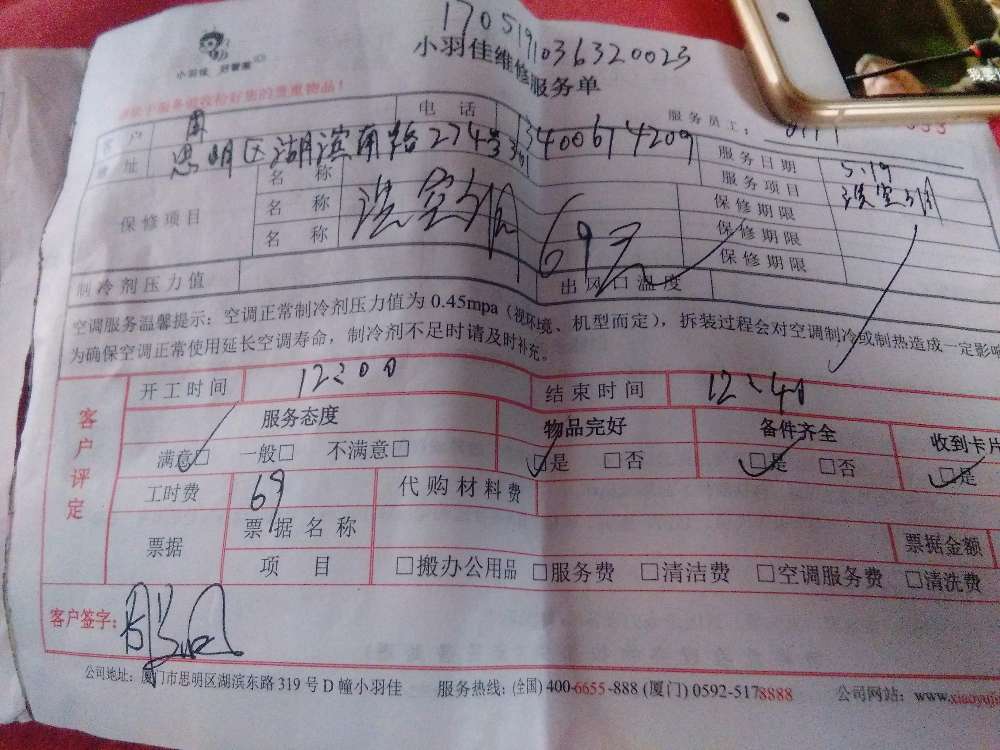 1705191036320023
小羽佳 好管家
小羽佳维修服务单
请在服务前收检好您的贵重物品！
服务员工：
客户 周 电话 13400674209
地址 思明区湖滨南路274号
服务日期 5.19
服务项目 洗空调
保修项目 名称
名称 洗空调 69元
名称
保修期限
保修期限
保修期限
制冷剂压力值 出风口温度
空调服务温馨提示：空调正常制冷剂压力值为 0.45mpa（视环境、机型而定），拆装过程会对空调制冷或制热造成一定影响
为确保空调正常使用延长空调寿命，制冷剂不足时请及时补充。
客户评定
开工时间 12:00 结束时间 12:40
服务态度 物品完好 备件齐全 收到卡片
满意□ 一般□ 不满意□ □是 □否 □是 □否 □是
工时费 69 代购材料费
票据 票据名称 票据金额
项目 □搬办公用品 □服务费 □清洁费 □空调服务费 □清洗费
客户签字：
公司地址：厦门市思明区湖滨东路 319 号 D 幢小羽佳 服务热线：(全国) 400-6655-888 (厦门) 0592-5178888 公司网站：www.xiaoyuji